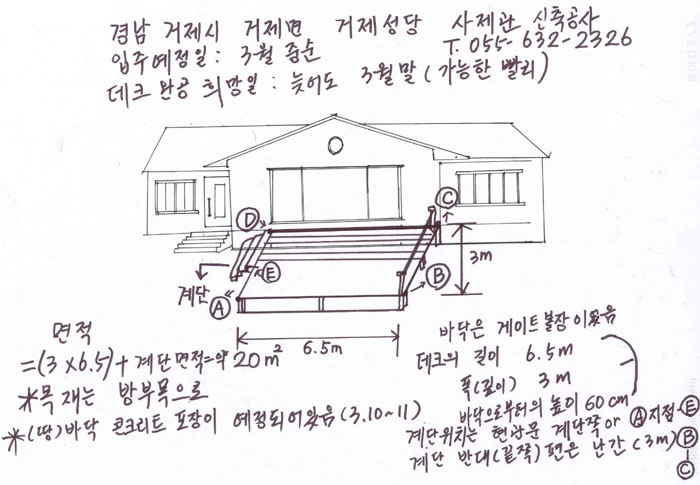 경남 거제시 거제면 거제성당 사제관 신축공사
입주예정일 : 3월 중순 T. 055-632-2326
데크 완공 희망일 : 늦어도 3월말 (가능한 빨리)
Ⓒ
Ⓓ
3m
Ⓔ
계단
Ⓐ
Ⓑ
6.5m
면적
=(3×6.5)+계단면적=약 20m²
*목재는 방부목으로
*(땅)바닥 콘크리트 포장이 예정되어있음 (3.10~11)
바닥은 게이트볼장이었음
데크의 길이 6.5m
폭(깊이) 3m
바닥으로부터의 높이 60cm
계단위치는 현관문 계단쪽 or Ⓐ지점-Ⓔ
계단 반대(끝쪽)편은 난간(3m) Ⓑ
Ⓒ